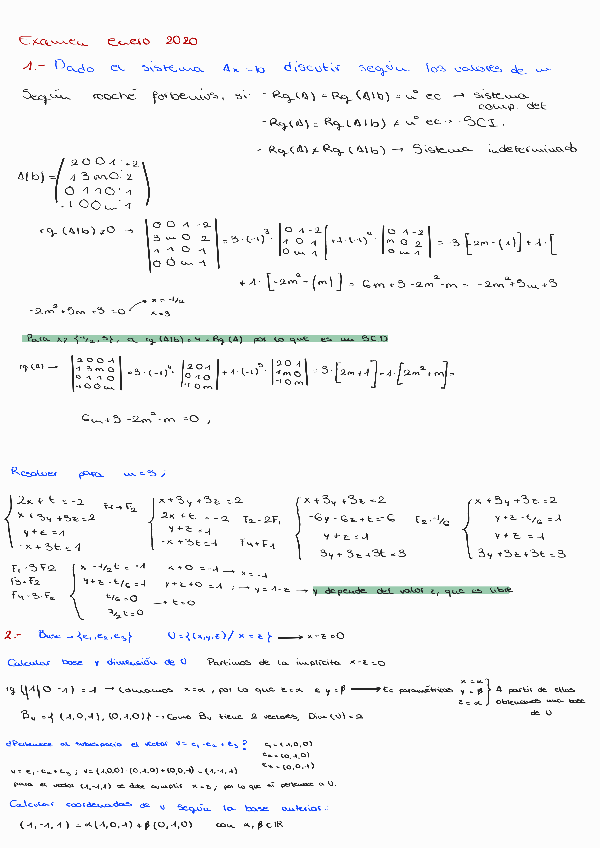 Examen enero 2020
1.- Dado el sistema Ax=b discutir según los valores de m
Según roché forbenius, si: - Rg(A) = Rg(A|b) = nº ec → sistema comp. det
- Rg(A) = Rg(A|b) ≠ nº ec → SCI.
- Rg(A) ≠ Rg(A|b) → Sistema indeterminado
A|b) = ( 2 0 0 1 : -2
1 3 m 0 : 2
0 1 1 0 : 1
-1 0 0 m : 1 )
rg (A|b) ≠ 0 → | 0 0 1 -2 | 3 m 0 2 | 1 1 0 1 | 0 0 m 1 | = 3·(-1)³ · | 0 1 -2 | 1 0 1 | 0 m 1 | + 1·(-1)⁴ · | 0 1 -2 | m 0 2 | 0 m 1 | = 3[-2m-(1)] + 1·[
+ 1·[-2m²-(m)] = 6m+3-2m²-m = -2m²+5m+3
-2m²+5m+3 = 0 x = -1/2
x = 3
Para x≠{-1/2, 3}, rg (A|b) = 4 = Rg(A) por lo que es un SCD
rg(A) → | 2 0 0 1 | 1 3 m 0 | 0 1 1 0 | -1 0 0 m | = 3·(-1)⁴ · | 2 0 1 | 0 1 0 | -1 0 m | + 1·(-1)⁵ · | 2 0 1 | 1 m 0 | -1 0 m | = 3·[2m+1] - 1·[2m²+m] =
6m+3-2m²-m = 0 ;
Resolver para m=3 ;
2x + t = -2
x + 3y + 3z = 2
y + z = 1
-x + 3t = 1
F1↔F2
x + 3y + 3z = 2
2x + t = -2
y + z = 1
-x + 3t = 1
F2-2F1
F4+F1
x + 3y + 3z = 2
-6y - 6z + t = -6
y + z = 1
3y + 3z + 3t = 3
F2·-1/6
x + 3y + 3z = 2
y + z - t/6 = 1
y + z = 1
3y + 3z + 3t = 3
F1-3F2
F3-F2
F4-3·F2
x - 1/2 t = -1
y + z - t/6 = 1
t/6 = 0
7/2 t = 0
→ t = 0
x + 0 = -1 → x = -1
y + z + 0 = 1 ; → y = 1-z → y depende del valor z, que es libre
2.- Base → {e₁, e₂, e₃} U = {(x,y,z) / x = z} → x-z=0
Calcular base y dimensión de U Partimos de la implícita x-z=0
rg (1 0 -1) = 1 → tomamos x=α, por lo que z=α e y=β → Ec paramétricas x = α
y = β
z = α
A partir de ellas obtenemos una base de U
Bu = { (1,0,1), (0,1,0)} → Como Bu tiene 2 vectores, Dim (U) = 2
¿Pertenece al subespacio el vector v = e₁-e₂+e₃?
e₁ = (1,0,0)
e₂ = (0,1,0)
e₃ = (0,0,1)
v = e₁ - e₂ + e₃ ; v = (1,0,0) - (0,1,0) + (0,0,1) = (1,-1,1)
para el vector (1,-1,1) se debe cumplir x=z, por lo que sí pertenece a U.
Calcular coordenadas de v según la base anterior:
(1,-1,1) = α(1,0,1) + β(0,1,0) con α, β ∈ IR